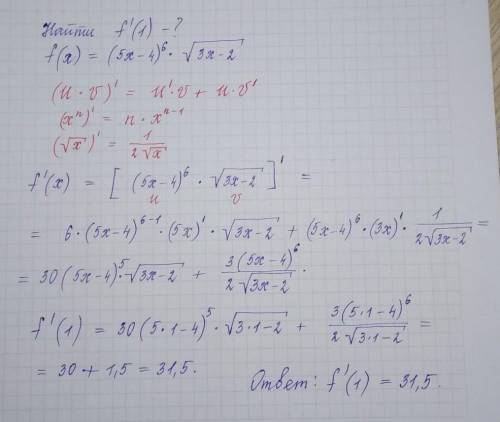 Найти f'(1) - ?
f(x) = (5x-4)⁶ · √(3x-2)
(u·v)' = u'·v + u·v'
(xⁿ)' = n·xⁿ⁻¹
(√x)' = 1/(2√x)
f'(x) = [(5x-4)⁶ · √(3x-2)]' =
u v
= 6·(5x-4)⁶⁻¹·(5x)'·√(3x-2) + (5x-4)⁶·(3x)'·1/(2√(3x-2)) =
= 30(5x-4)⁵·√(3x-2) + 3(5x-4)⁶/(2√(3x-2)).
f'(1) = 30(5·1-4)⁵·√(3·1-2) + 3(5·1-4)⁶/(2√(3·1-2)) =
= 30 + 1,5 = 31,5. Ответ: f'(1) = 31,5.